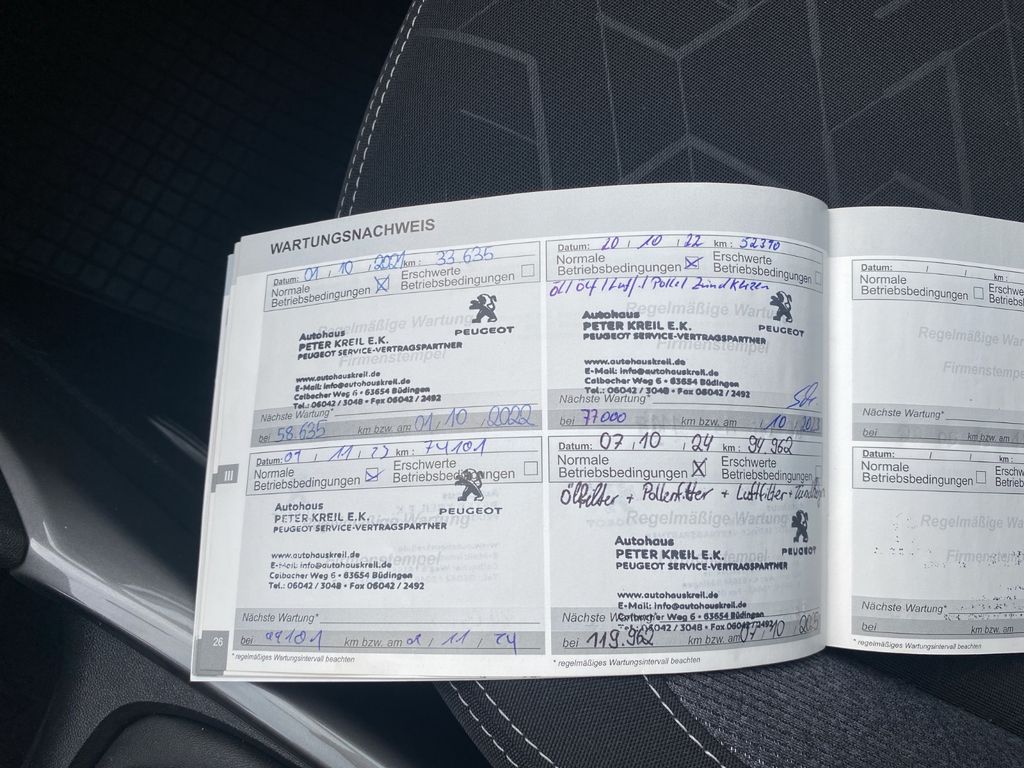 WARTUNGSNACHWEIS
Datum: 01 / 10 / 2021 km: 33.635
Normale
Betriebsbedingungen
Erschwerte
Betriebsbedingungen
Regelmäßige Wartung
Firmenstempel
PEUGEOT
Autohaus
PETER KREIL E.K.
PEUGEOT SERVICE-VERTRAGSPARTNER
www.autohauskreil.de
E-Mail: info@autohauskreil.de
Calbacher Weg 6 • 63654 Büdingen
Tel.: 06042 / 3048 • Fax 06042 / 2492
Nächste Wartung*
bei 58.635 km bzw. am 01 / 10 / 2022
Datum: 20 / 10 / 22 km: 52390
Normale
Betriebsbedingungen
Erschwerte
Betriebsbedingungen
Öl / Öf / Luft / Polle / Zündkerzen
PEUGEOT
Autohaus
PETER KREIL E.K.
PEUGEOT SERVICE-VERTRAGSPARTNER
www.autohauskreil.de
E-Mail: info@autohauskreil.de
Calbacher Weg 6 • 63654 Büdingen
Tel.: 06042 / 3048 • Fax 06042 / 2492
Nächste Wartung*
bei 77000 km bzw. am / 10 / 2023
Datum: 01 / 11 / 23 km: 74101
Normale
Betriebsbedingungen
Erschwerte
Betriebsbedingungen
PEUGEOT
Autohaus
PETER KREIL E.K.
PEUGEOT SERVICE-VERTRAGSPARTNER
www.autohauskreil.de
E-Mail: info@autohauskreil.de
Calbacher Weg 6 • 63654 Büdingen
Tel.: 06042 / 3048 • Fax 06042 / 2492
Nächste Wartung*
bei 99101 km bzw. am 01 / 11 / 24
* regelmäßiges Wartungsintervall beachten
Datum: 07 / 10 / 24 km: 94.962
Normale
Betriebsbedingungen
Erschwerte
Betriebsbedingungen
Ölfilter + Pollenfilter + Luftfilter +
Regelmäßige Wartung
PEUGEOT
Autohaus
PETER KREIL E.K.
PEUGEOT SERVICE-VERTRAGSPARTNER
www.autohauskreil.de
E-Mail: info@autohauskreil.de
Calbacher Weg 6 • 63654 Büdingen
Tel.: 06042 / 3048 • Fax 06042 / 2492
Nächste Wartung*
bei 119.962 km bzw. am 07 / 10 / 2025
* regelmäßiges Wartungsintervall beachten
III
26
Datum: / / km:
Normale
Betriebsbedingungen
Erschwe
Betriebs
Regelmäßige Wart
Firmenstempel
Nächste Wartung*
bei km bzw. am
Datum: / / km:
Normale
Betriebsbedingungen
Erschw
Betriebs
Regelmäßige War
Firmenstempel
Nächste Wartung*
bei km bzw. am
* regelmäßiges Wartungsintervall beachten